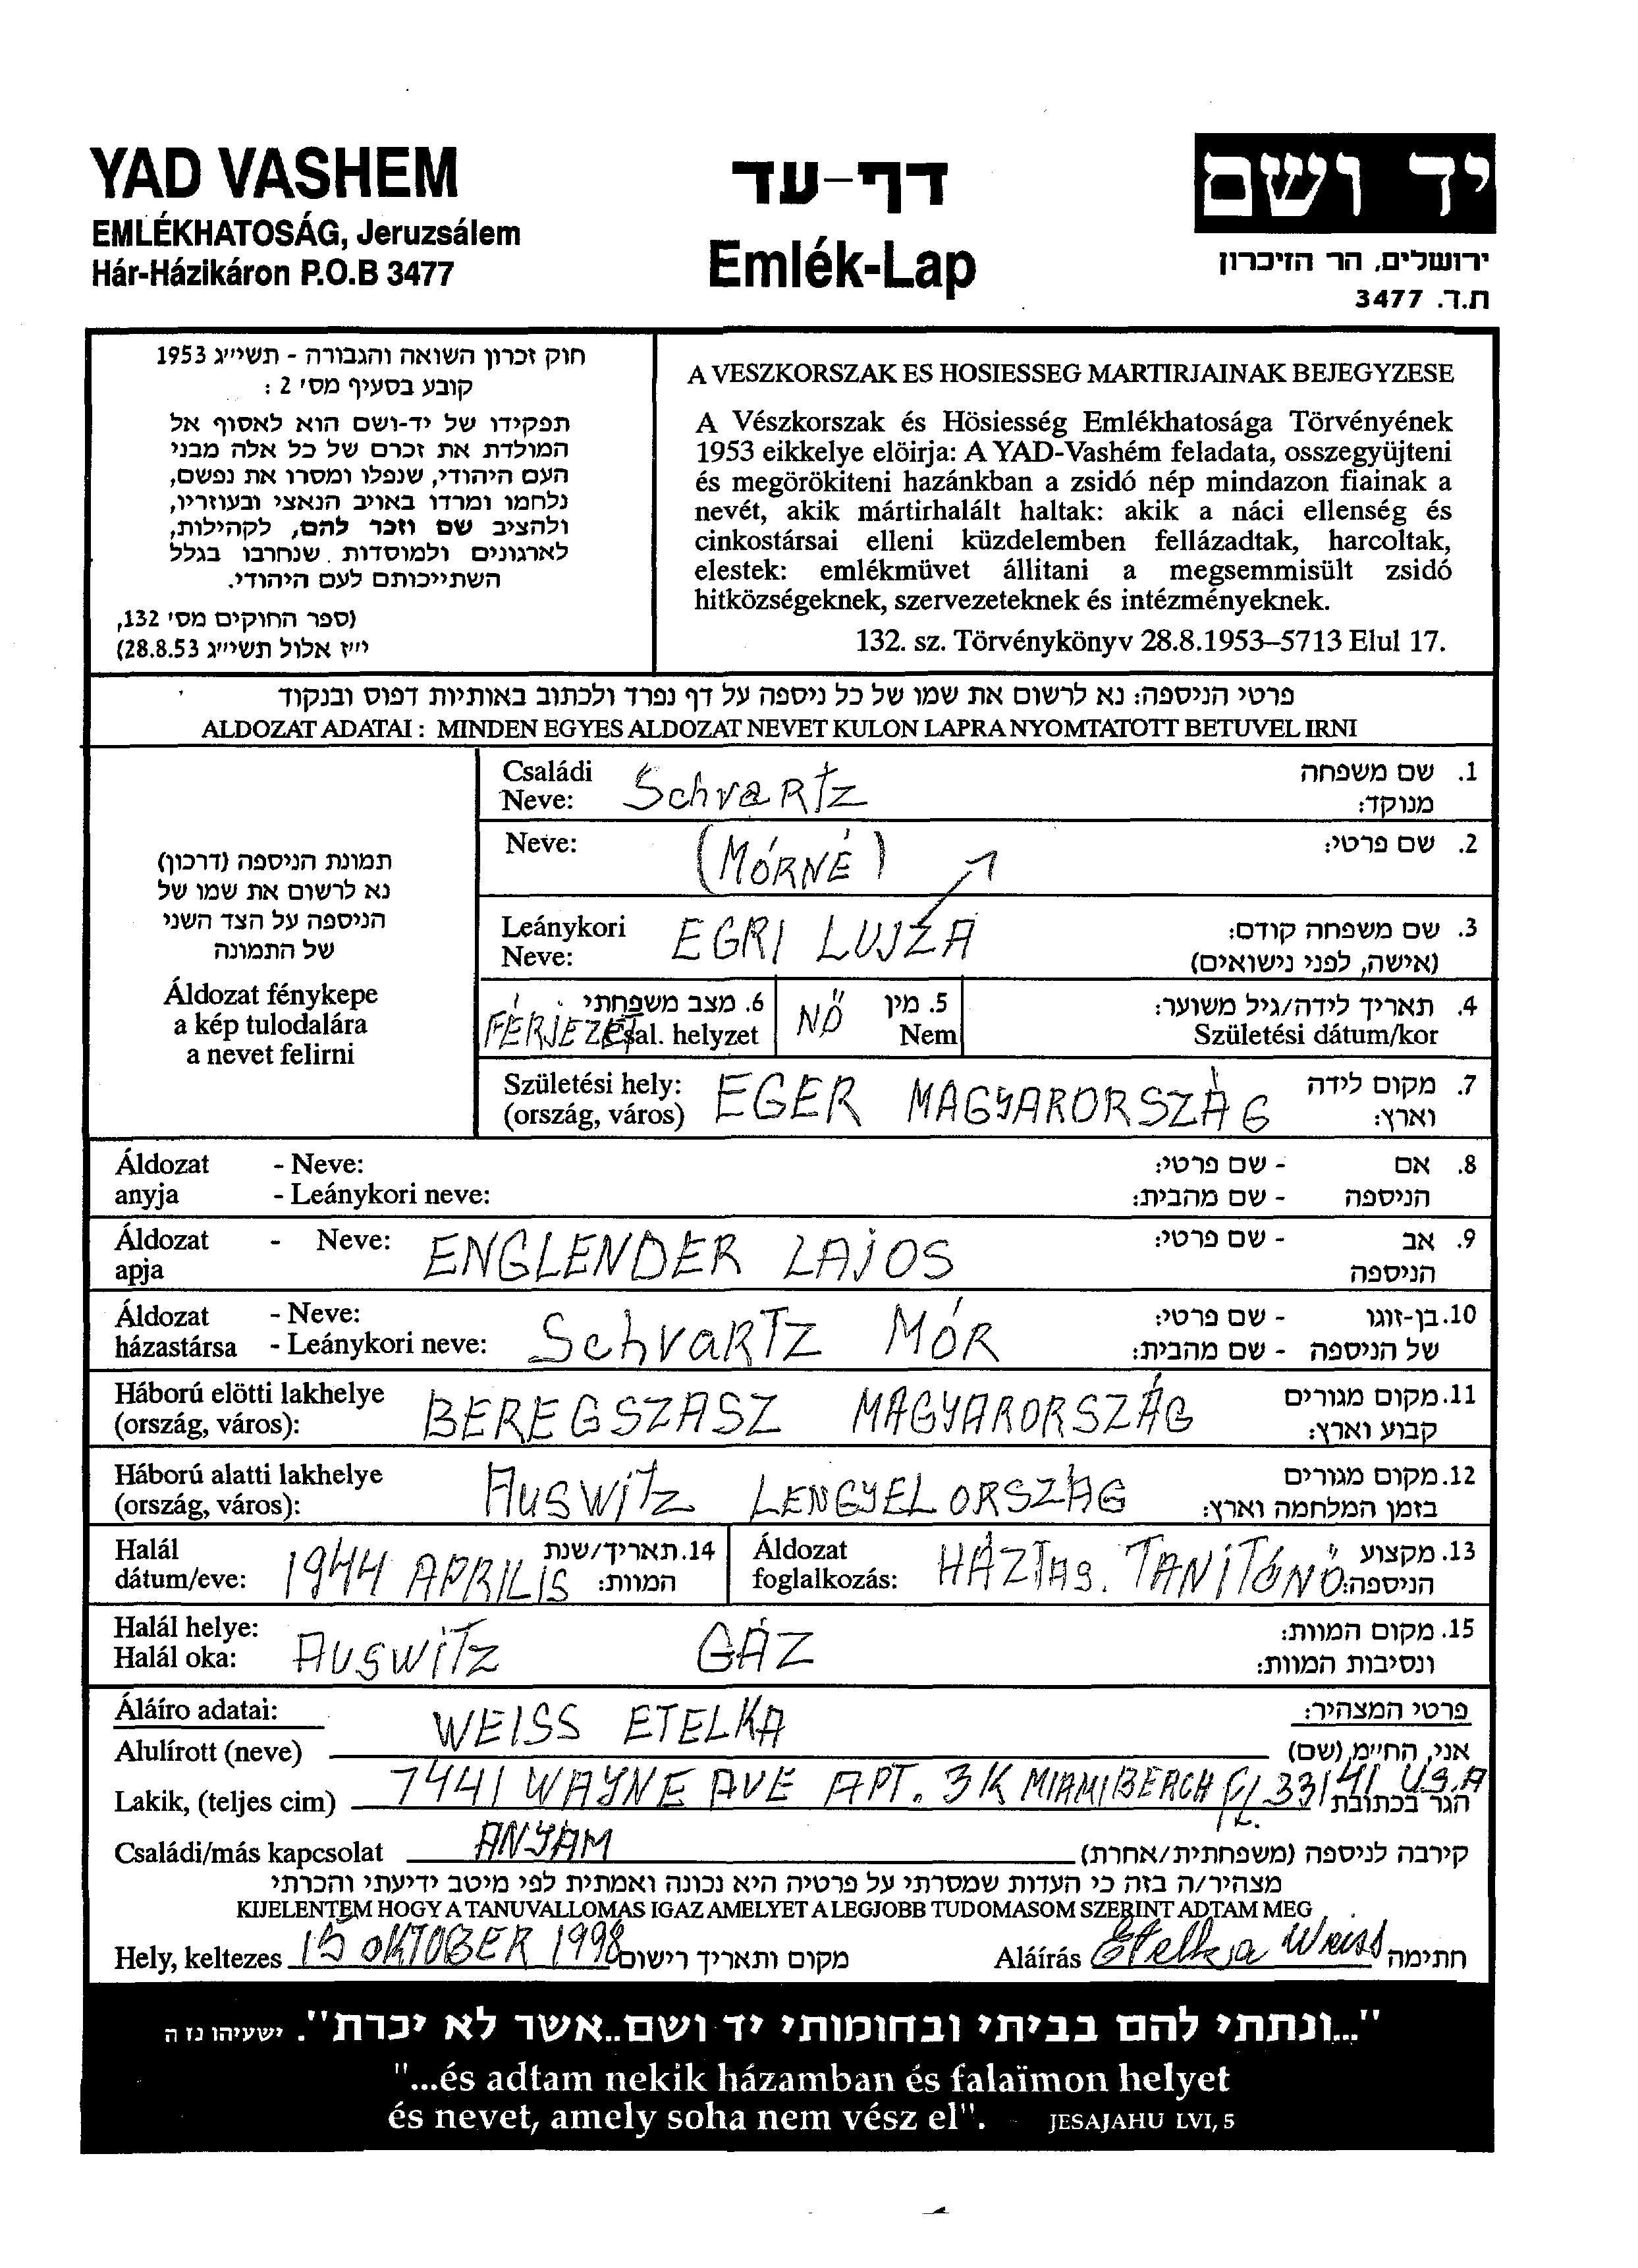 YAD VASHEM
EMLÉKHATOSÁG, Jeruzsálem
Hár-Házikáron P.O.B 3477
דף-עד
Emlék-Lap
יד ושם
ירושלים, הר הזיכרון
ת.ד. 3477
חוק זכרון השואה והגבורה - תשי״ג 1953
קובע בסעיף מס׳ 2 :
תפקידו של יד-ושם הוא לאסוף אל
המולדת את זכרם של כל אלה מבני
העם היהודי, שנפלו ומסרו את נפשם,
נלחמו ומרדו באויב הנאצי ובעוזריו,
ולהציב שם וזכר להם, לקהילות,
לארגונים ולמוסדות שנחרבו בגלל
השתייכותם לעם היהודי.
(ספר החוקים מס׳ 132,
י״ז אלול תשי״ג 28.8.53)
A VESZKORSZAK ES HOSIESSEG MARTIRJAINAK BEJEGYZESE
A Vészkorszak és Hösiesség Emlékhatosága Törvényének
1953 eikkelye elöirja: A YAD-Vashém feladata, osszegyüjteni
és megörökiteni hazánkban a zsidó nép mindazon fiainak a
nevét, akik mártirhalált haltak: akik a náci ellenség és
cinkostársai elleni küzdelemben fellázadtak, harcoltak,
elestek: emlékmüvet állitani a megsemmisült zsidó
hitközségeknek, szervezeteknek és intézményeknek.
132. sz. Törvénykönyv 28.8.1953–5713 Elul 17.
פרטי הניספה: נא לרשום את שמו של כל ניספה על דף נפרד ולכתוב באותיות דפוס ובנקוד
ALDOZAT ADATAI : MINDEN EGYES ALDOZAT NEVET KULON LAPRA NYOMTATOTT BETUVEL IRNI
תמונת הניספה (דרכון)
נא לרשום את שמו של
הניספה על הצד השני
של התמונה
Áldozat fénykepe
a kép tulodalára
a nevet felirni
Családi
Neve: Schvartz
1. שם משפחה
מנוקד:
Neve: (MÓRNÉ)
2. שם פרטי:
Leánykori
Neve: EGRI LUJZA
3. שם משפחה קודם:
(אישה, לפני נישואים)
6. מצב משפחתי
FÉRJEZET Csal. helyzet
5. מין
NŐ Nem
4. תאריך לידה/גיל משוער:
Születési dátum/kor
Születési hely:
(ország, város) EGER MAGYARORSZÁG
7. מקום לידה
וארץ:
Áldozat - Neve:
anyja - Leánykori neve:
8. אם - שם פרטי:
הניספה - שם מהבית:
Áldozat - Neve: ENGLENDER LAJOS
apja
9. אב - שם פרטי:
הניספה
Áldozat - Neve:
házastársa - Leánykori neve: Schvartz MÓR
10. בן-זוגו - שם פרטי:
של הניספה - שם מהבית:
Háború elötti lakhelye
(ország, város): BEREGSZASZ MAGYARORSZÁG
11. מקום מגורים
קבוע וארץ:
Háború alatti lakhelye
(ország, város): AUSWITZ LENGYELORSZÁG
12. מקום מגורים
בזמן המלחמה וארץ:
Halál
dátum/eve: 1944 APRILIS
14. תאריך/שנת
המוות:
Áldozat
foglalkozás: HÁZTAS. TANÍTÓNŐ
13. מקצוע
הניספה:
Halál helye:
Halál oka: AUSWITZ GÁZ
15. מקום המוות:
ונסיבות המוות:
Áláíro adatai:
פרטי המצהיר:
Alulírott (neve) WEISS ETELKA אני, החי״מ (שם)
Lakik, (teljes cim) 7441 WAYNE AVE APT. 3K MIAMI BEACH FL. 33141 U.S.A הגר בכתובת
Családi/más kapcsolat ANYÁM קירבה לניספה (משפחתית/אחרת)
מצהיר/ה בזה כי העדות שמסרתי על פרטיה היא נכונה ואמתית לפי מיטב ידיעתי והכרתי
KIJELENTEM HOGY A TANUVALLOMAS IGAZ AMELYET A LEGJOBB TUDOMASOM SZERINT ADTAM MEG
Hely, keltezes 15 OKTOBER 1998 מקום ותאריך רישום Aláírás Etelka Weiss חתימה
"...ונתתי להם בביתי ובחומותי יד ושם..אשר לא יכרת". ישעיהו נז ה
"...és adtam nekik házamban és falaïmon helyet
és nevet, amely soha nem vész el". JESAJAHU LVI, 5